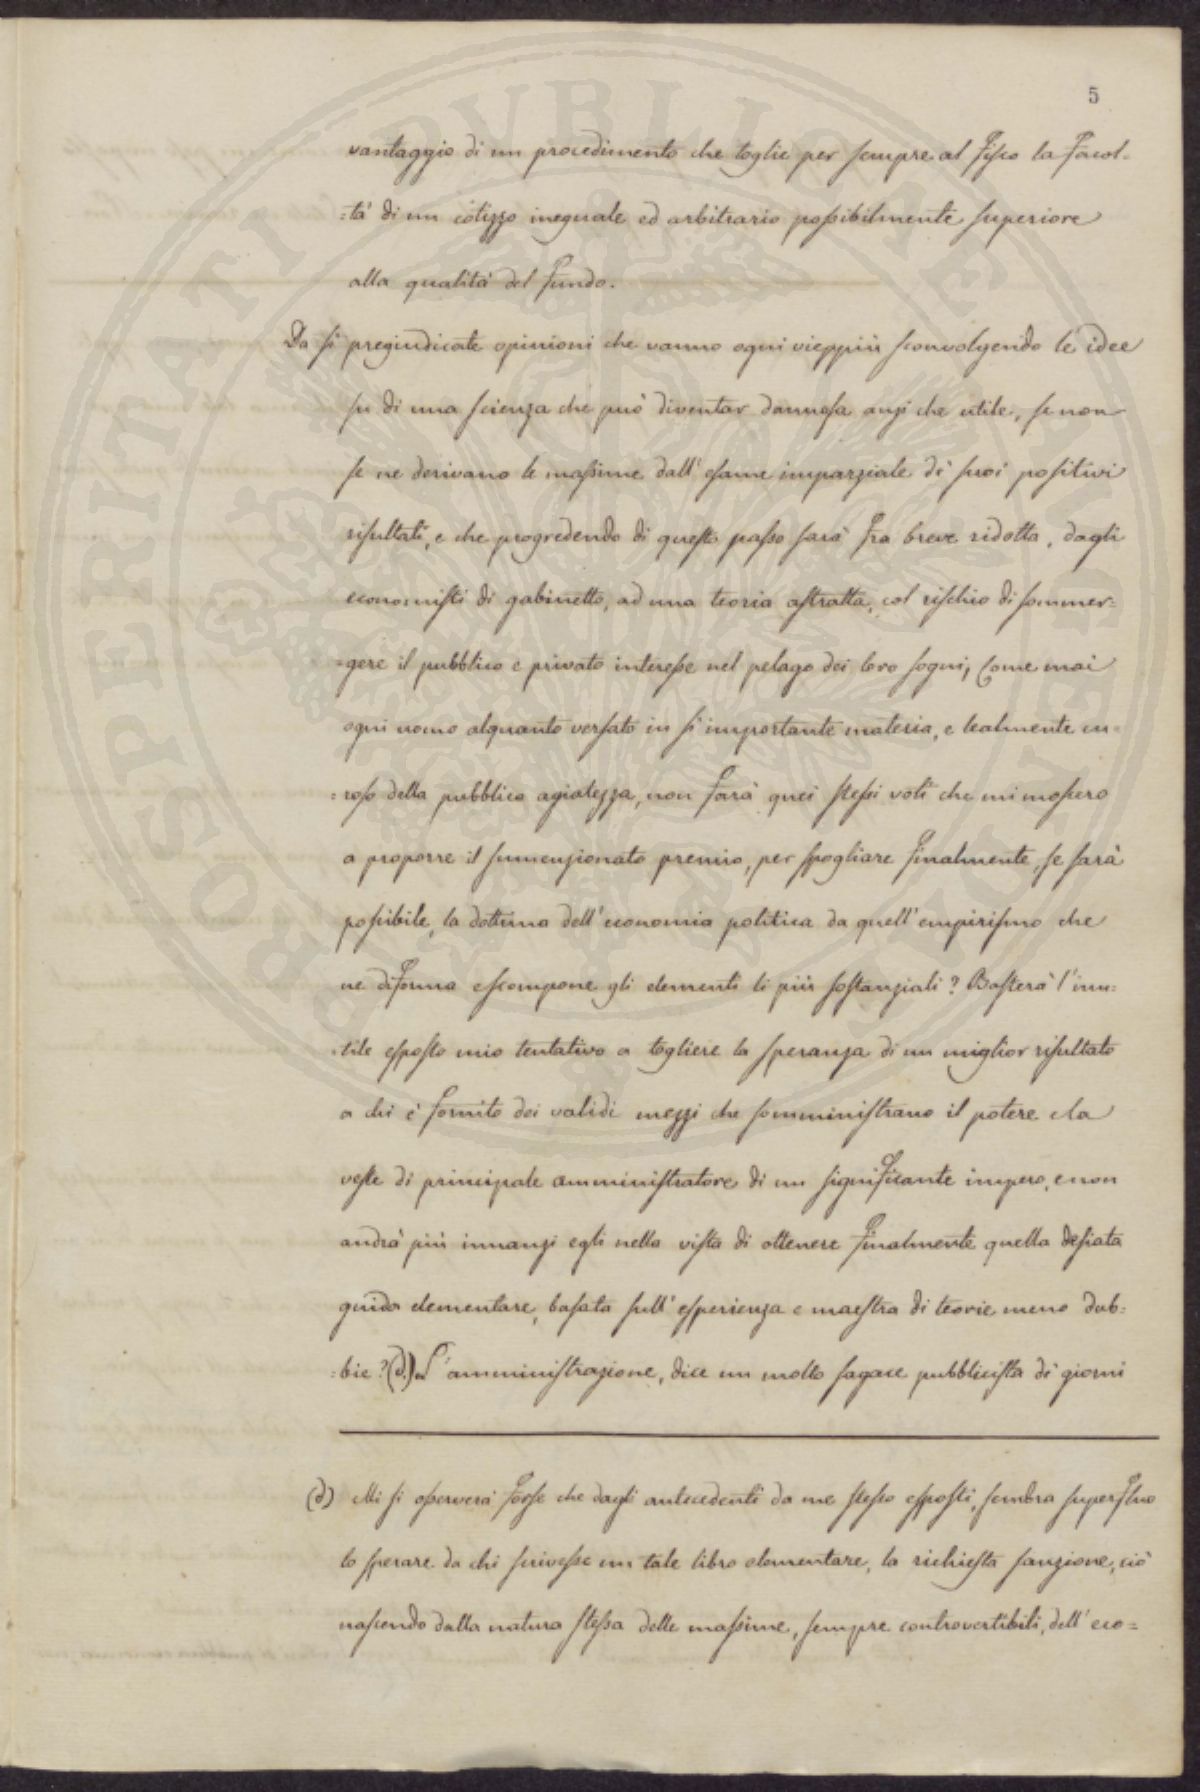 5
vantaggio di un procedimento che toglie per sempre al Fisco la Facol-
=tà di un cotizzo ineguale ed arbitrario possibilmente superiore
alla qualità del fundo.
Da sì pregiudicate opinioni che vanno ogni vieppiù sconvolgendo le idee
su di una scienza che può diventar dannosa anzi che utile, se non
se ne derivano le massime dall'esame imparziale di suoi positivi
risultati, e che progredendo di questo passo sarà fra breve ridotta, dagli
economisti di gabinetto, ad una teoria astratta, col rischio di sommer=
=gere il pubblico e privato interesse nel pelago dei loro sogni, Come mai
ogni uomo alquanto versato in sì importante materia, e lealmente cu=
=roso della pubblica agiatezza, non farà quei stessi voti che mi mossero
a proporre il summenzionato premio, per spogliare finalmente, se sarà
possibile, la dottrina dell'economia politica da quell'empirismo che
ne difforma e scompone gli elementi li più sostanziali? Basterà l'inu=
=tile esposto mio tentativo a togliere la speranza di un miglior risultato
a chi è fornito dei validi mezzi che somministrano il potere e la
veste di principale amministratore di un significante impero, e non
andrà più innanzi egli nella vista di ottenere finalmente quella desiata
guida elementare, basata sull'esperienza e maestra di teorie meno dub=
=bie? (d.) L'amministrazione, dice un molto sagace pubblicista di giorni
(d) Mi si osserverà forse che dagli antecedenti da me stesso esposti, sembra superfluo
lo sperare da chi scrivesse un tale libro elementare, la richiesta sanzione, ciò
nascendo dalla natura stessa delle massime, sempre controvertibili, dell'eco=
PROSPERITATI PVBLICAE